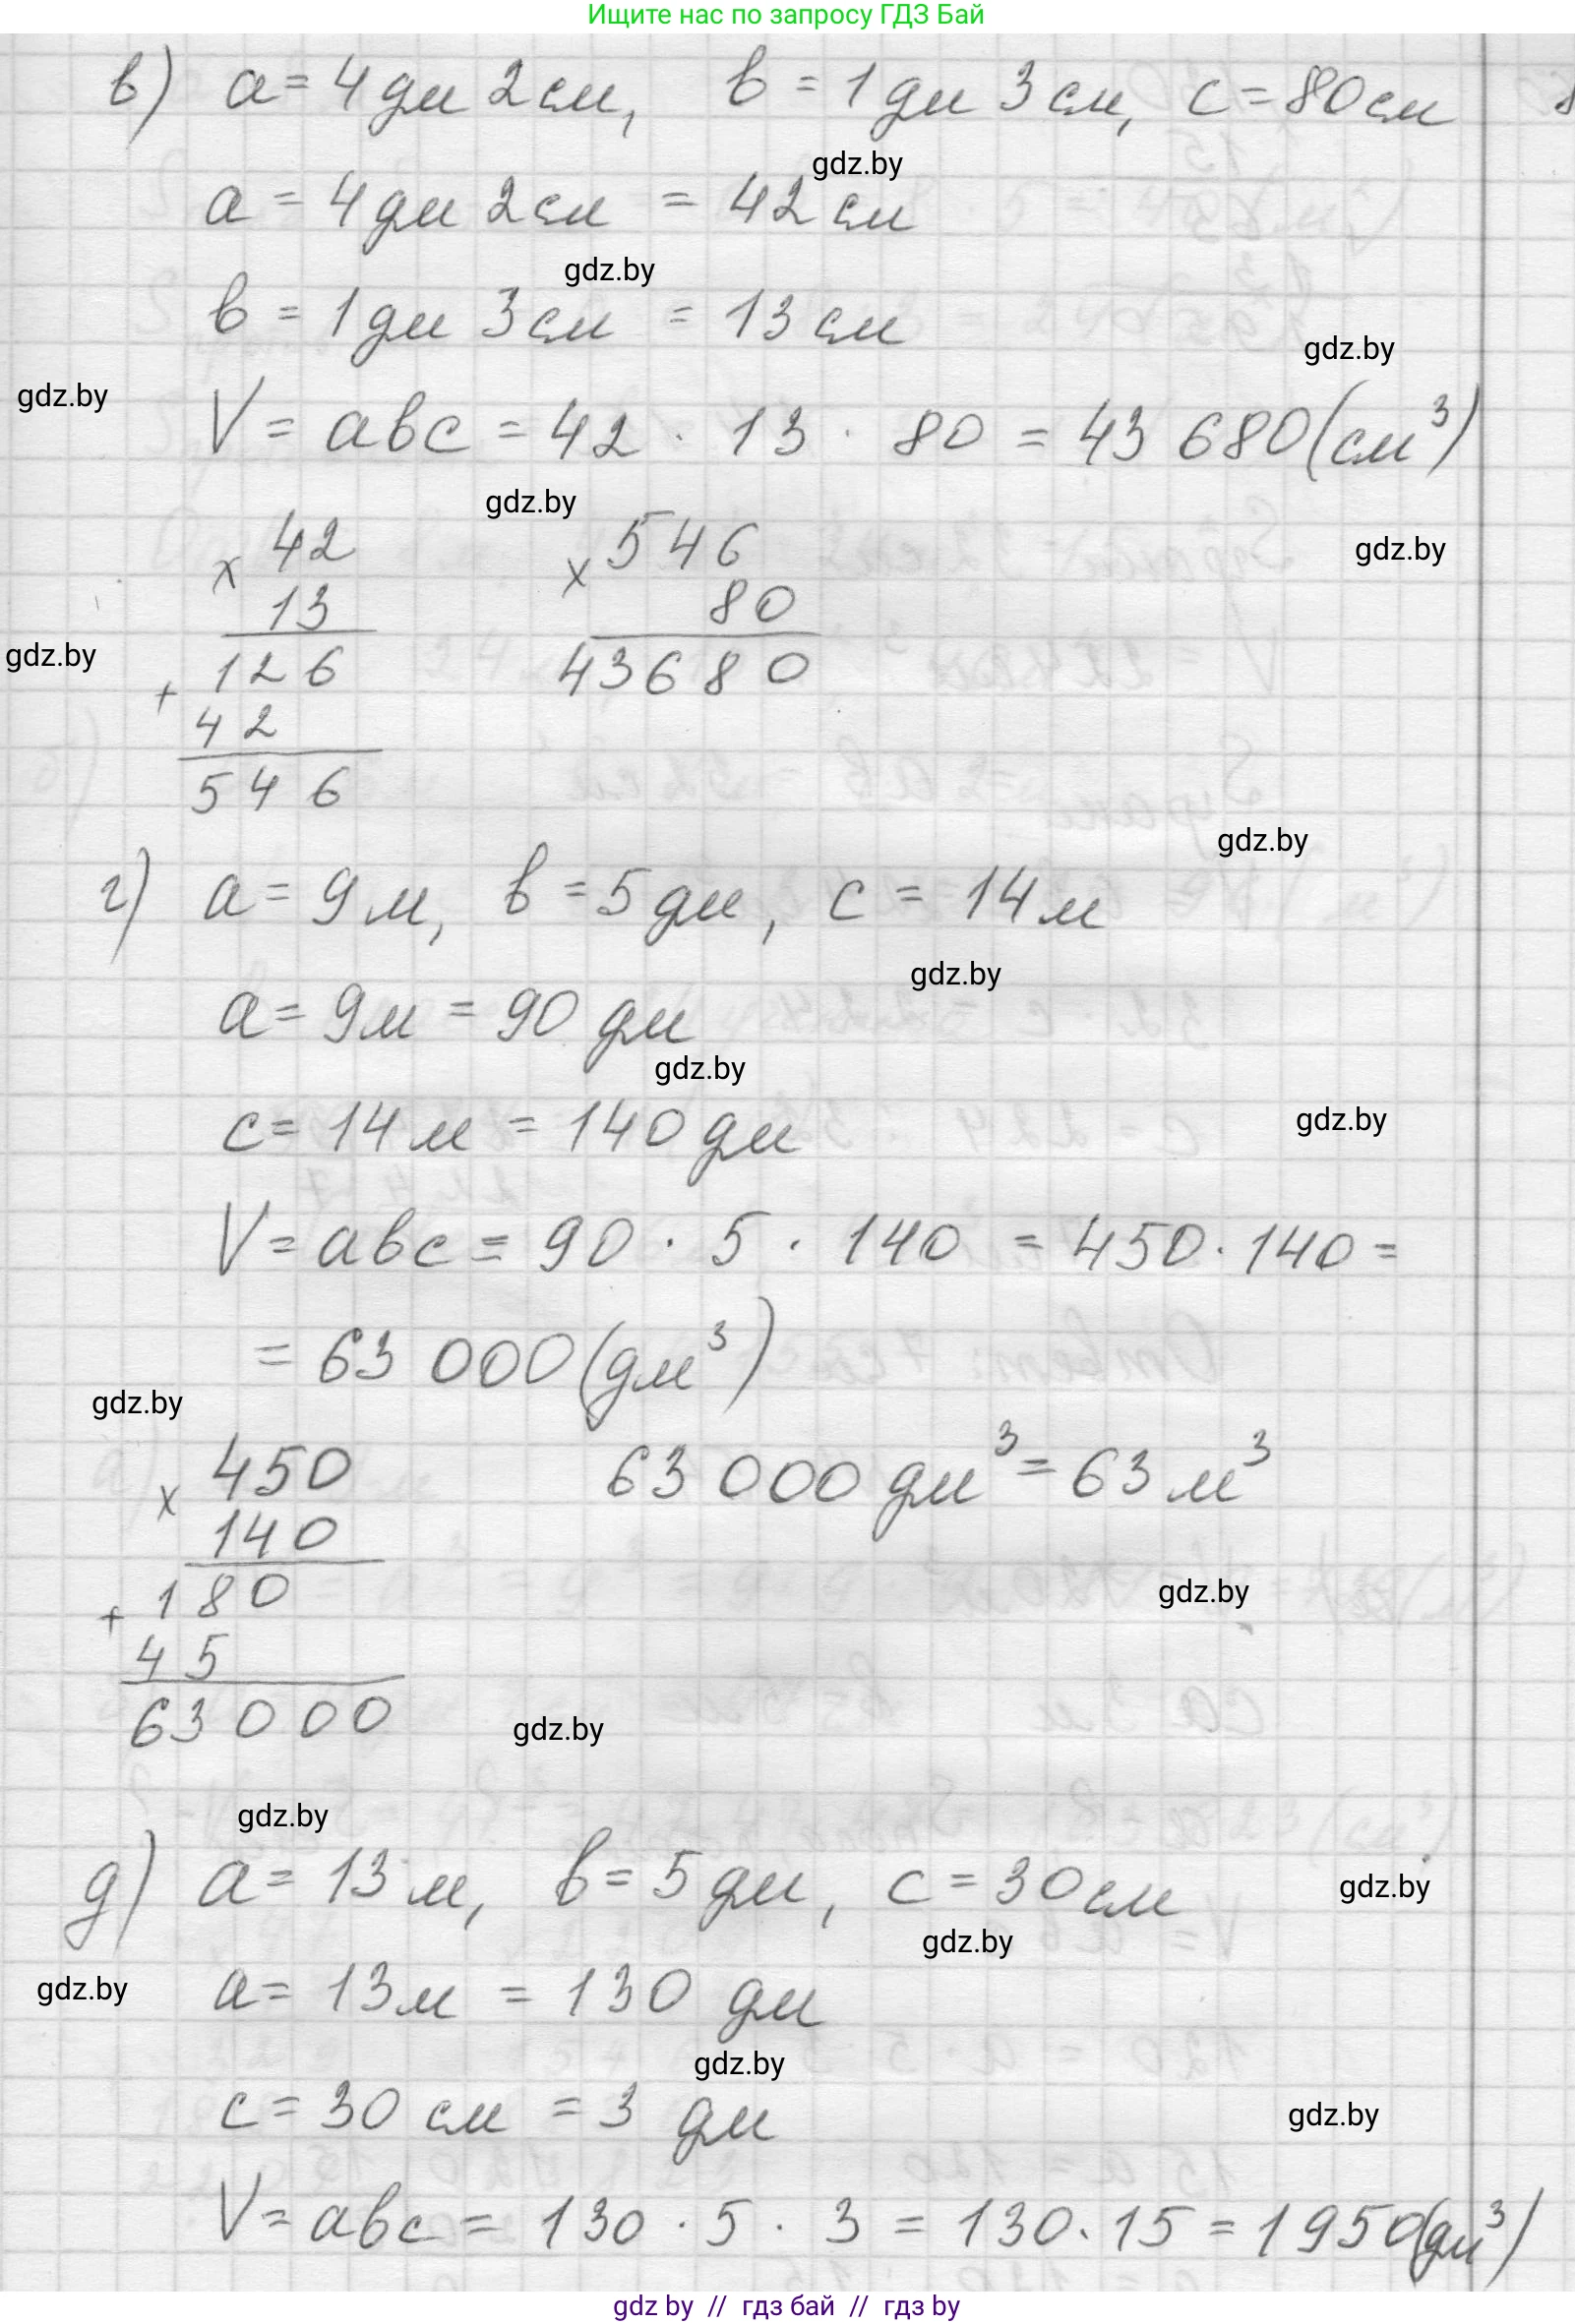 Ищите нас по запросу ГДЗ Бай
в) a = 4 дм 2 см, b = 1 дм 3 см, c = 80 см
gdz.by
a = 4 дм 2 см = 42 см
gdz.by
b = 1 дм 3 см = 13 см
gdz.by
gdz.by
V = abc = 42 · 13 · 80 = 43 680 (см³)
gdz.by
× 42 × 546
gdz.by
13 80
gdz.by
126 43680
+
42
546
gdz.by
г) a = 9 м, b = 5 дм, c = 14 м
gdz.by
a = 9 м = 90 дм
gdz.by
c = 14 м = 140 дм
gdz.by
V = abc = 90 · 5 · 140 = 450 · 140 =
= 63 000 (дм³)
gdz.by
× 450 63 000 дм³ = 63 м³
140
gdz.by
+ 180
45
63000
gdz.by
gdz.by
д) a = 13 м, b = 5 дм, c = 30 см
gdz.by
gdz.by
gdz.by
a = 13 м = 130 дм
gdz.by
c = 30 см = 3 дм
gdz.by
V = abc = 130 · 5 · 3 = 130 · 15 = 1950 (дм³)
gdz by // гдз бай // гдз by